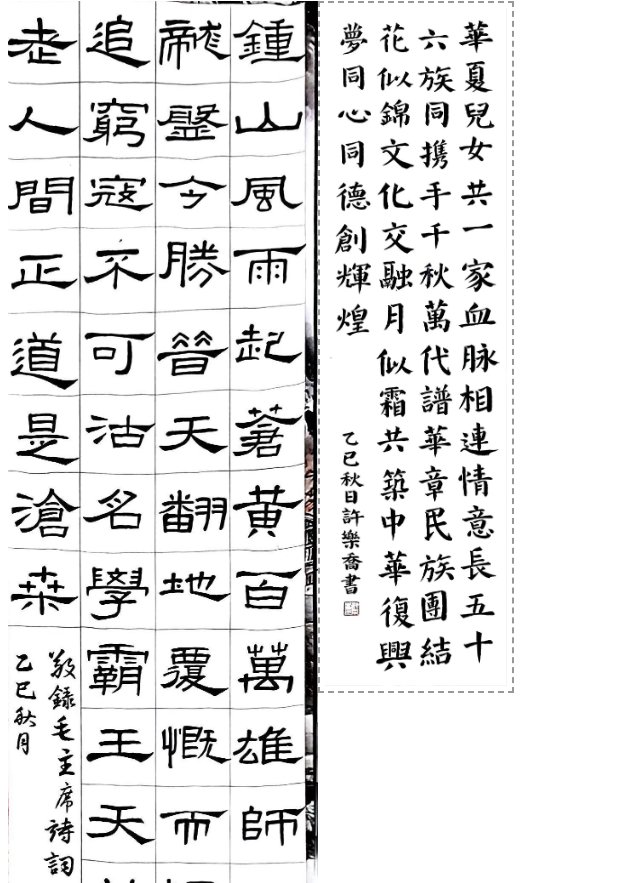 華夏兒女共一家血脉相連情意長五十
六族同携手千秋萬代譜華章民族團結
花似錦文化交融月似霜共築中華復興
夢同心同德創輝煌
乙巳秋日許樂喬書
鍾山風雨起蒼黃百萬雄師
龍盤今勝昔天翻地覆慨而
追窮寇不可沽名學霸王天
老人間正道是滄桑
敬錄毛主席詩詞
乙巳秋月